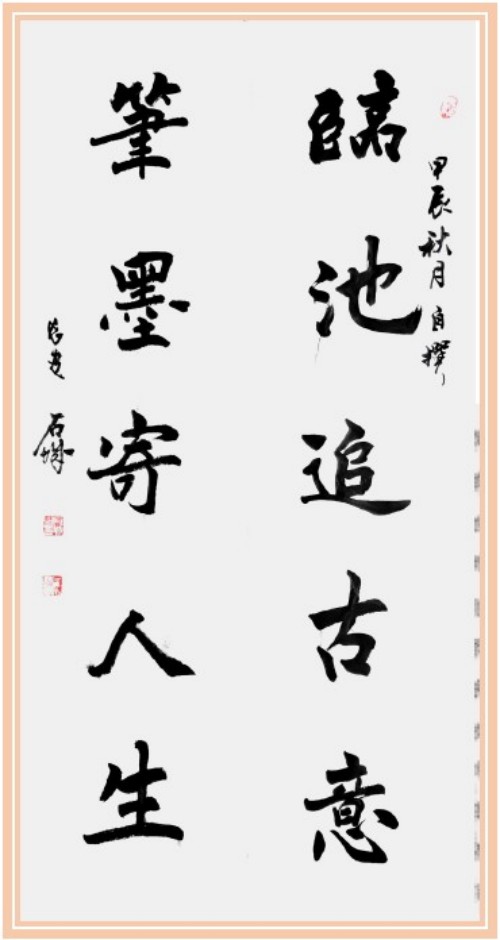 臨池追古意
筆墨寄人生
甲辰秋月自撰
石城